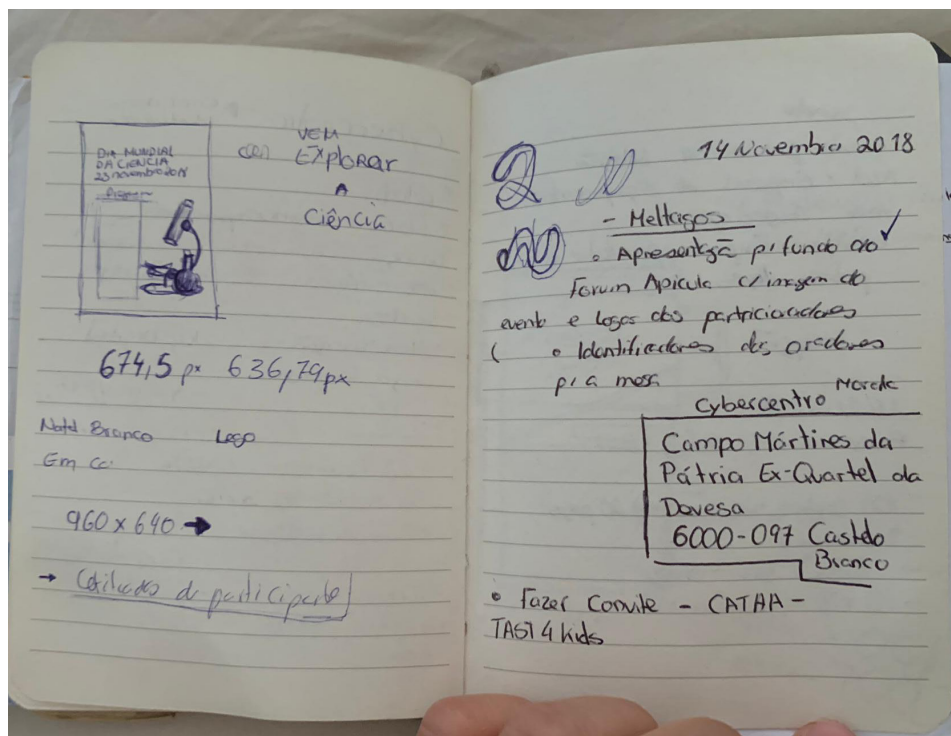 DIA MUNDIAL
DA CIENCIA
23 novembro 2018
Programa
VEM
Explorar
A
Ciência
674,5 px 636,79px
Natal Branco Logo
Em
960 x 640 →
→ de participante
14 Novembro 2018
- Meltagos
• Apresentaçã p/ fundo do ✓
Forum Apicula c/ imagem do
evento e logos dos
( • Identificadores dos oradores
p/ a mesa
Morada
Cybercentro
Campo Mártires da
Pátria Ex-Quartel da
Devesa
6000-097 Castelo
Branco
• Fazer Convite - CATAA -
TAST 4 kids